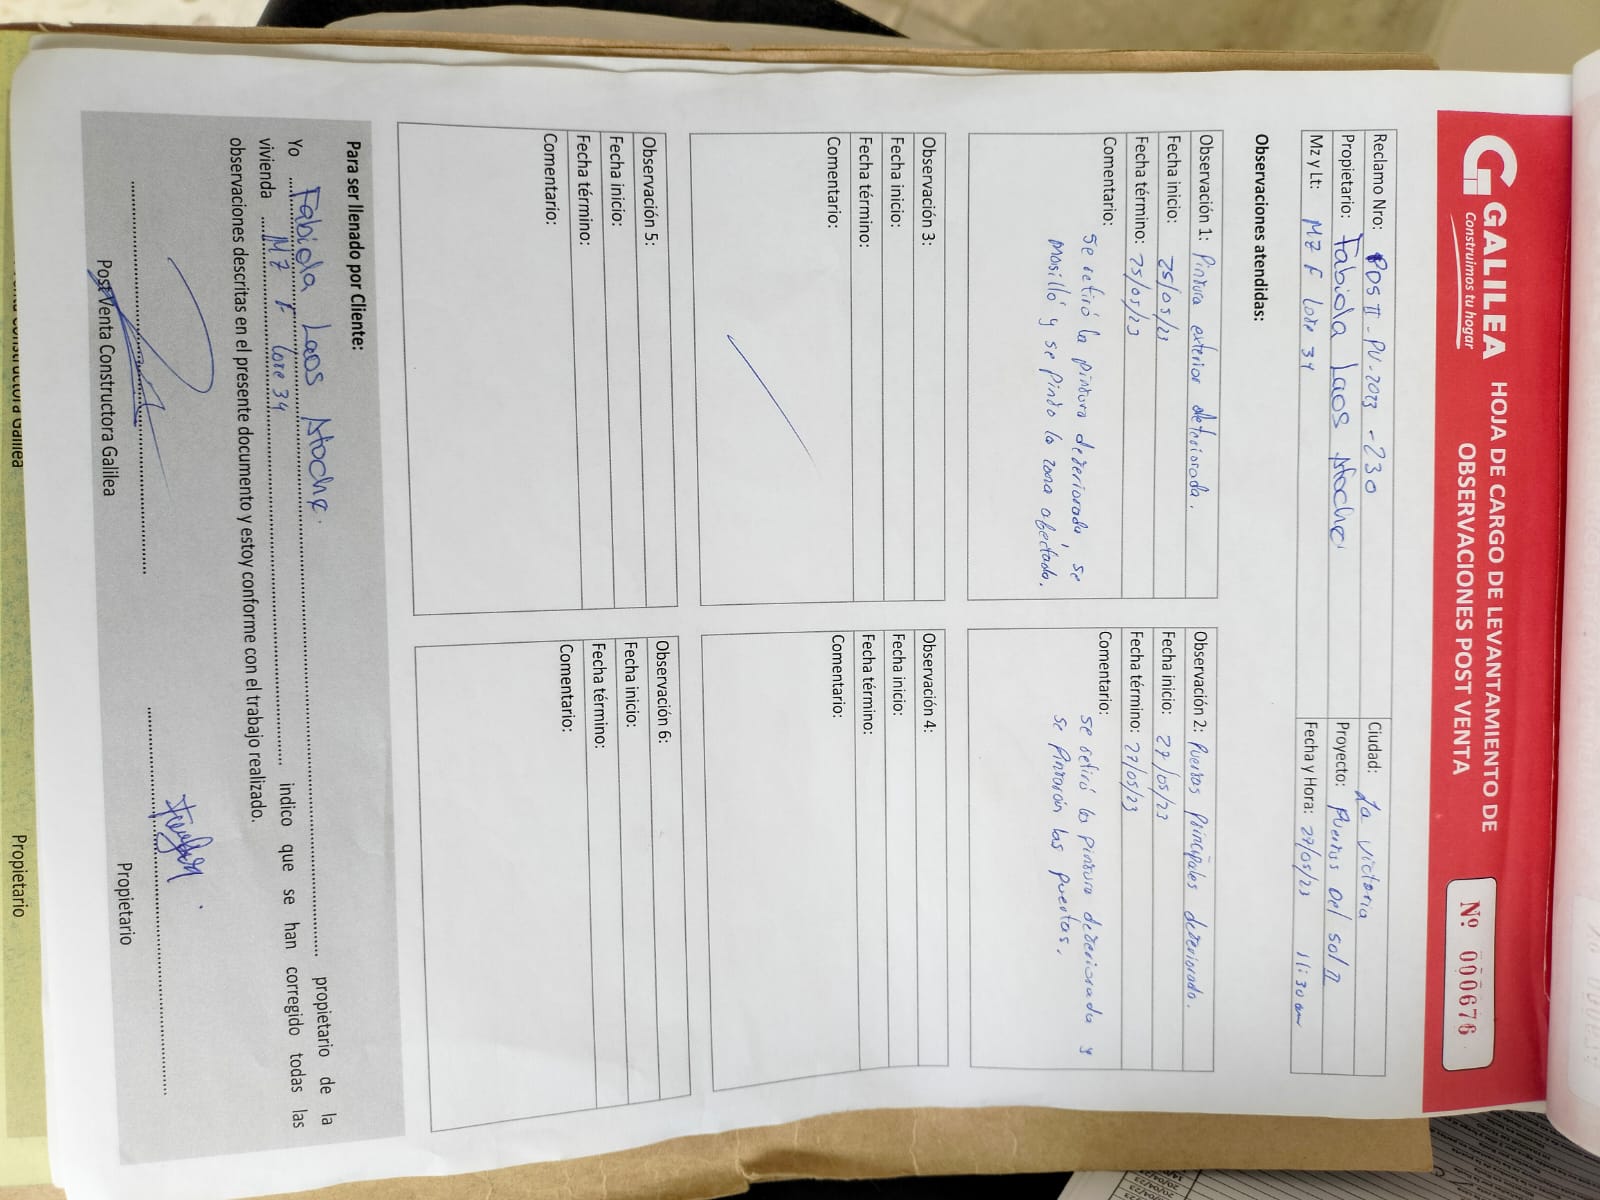 GALILEA
Construimos tu hogar
HOJA DE CARGO DE LEVANTAMIENTO DE
OBSERVACIONES POST VENTA
Nº 000676
Reclamo Nro: POS II - PV-2023 - 230
Ciudad: La Victoria
Propietario: Fabiola Laos Atoche
Proyecto: Puertas Del Sol II
Mz y Lt: MZ F Lote 34
Fecha y Hora: 27/05/23 11:30 am
Observaciones atendidas:
Observación 1: Pintura exterior deteriorada.
Fecha inicio: 25/05/23
Fecha término: 25/05/23
Comentario:
Se retiró la pintura deteriorada, se
masilló y se pinto la zona afectada.
Observación 2: Puertas Principales deteriorado.
Fecha inicio: 27/05/23
Fecha término: 27/05/23
Comentario:
Se retiró la pintura deteriorada y
se pintarón las puertas.
Observación 3:
Fecha inicio:
Fecha término:
Comentario:
Observación 4:
Fecha inicio:
Fecha término:
Comentario:
Observación 5:
Fecha inicio:
Fecha término:
Comentario:
Observación 6:
Fecha inicio:
Fecha término:
Comentario:
Para ser llenado por Cliente:
Yo Fabiola Laos Atoche. propietario de la
vivienda MZ F Lote 34 indico que se han corregido todas las
observaciones descritas en el presente documento y estoy conforme con el trabajo realizado.
Post Venta Constructora Galilea
Propietario
Constructora Galilea
Propietario